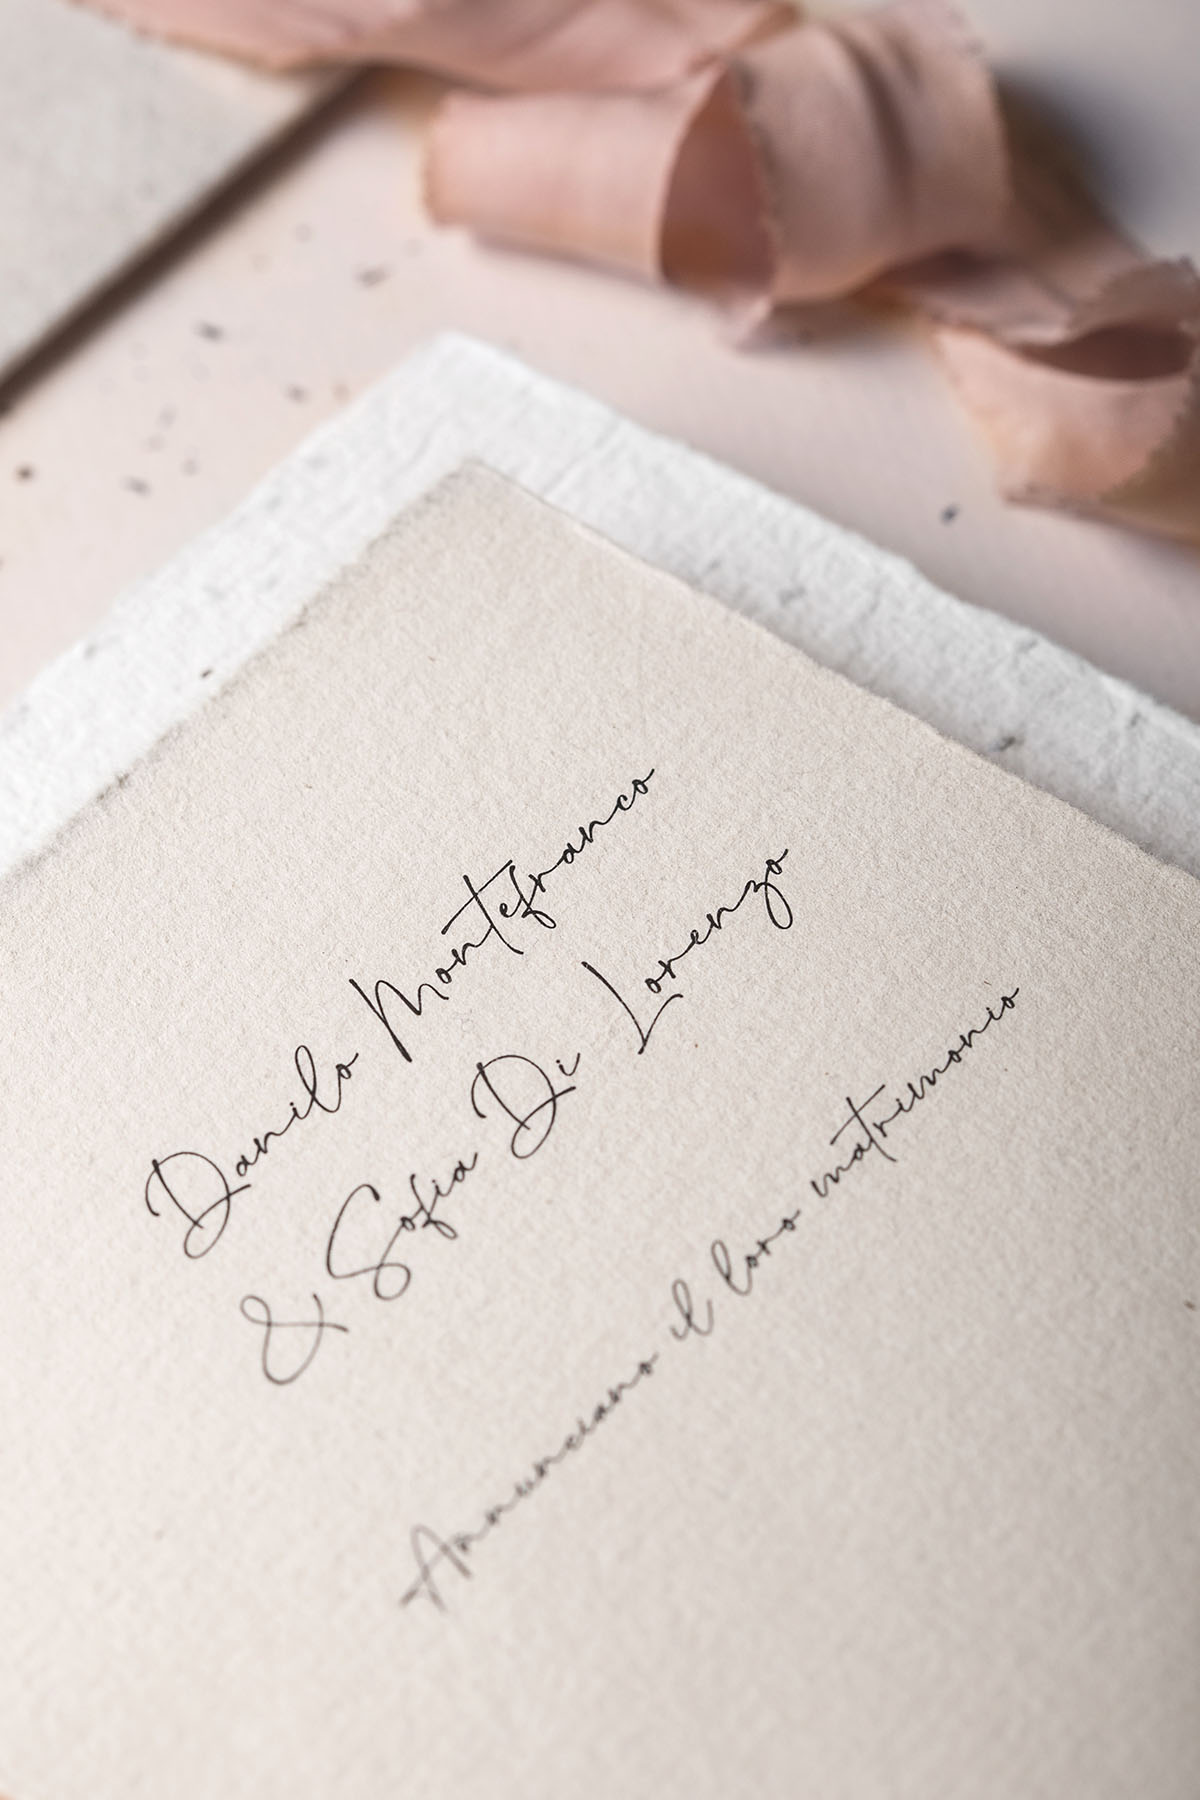 Danilo Montefranco
& Sofia Di Lorenzo
Annunciano il loro matrimonio